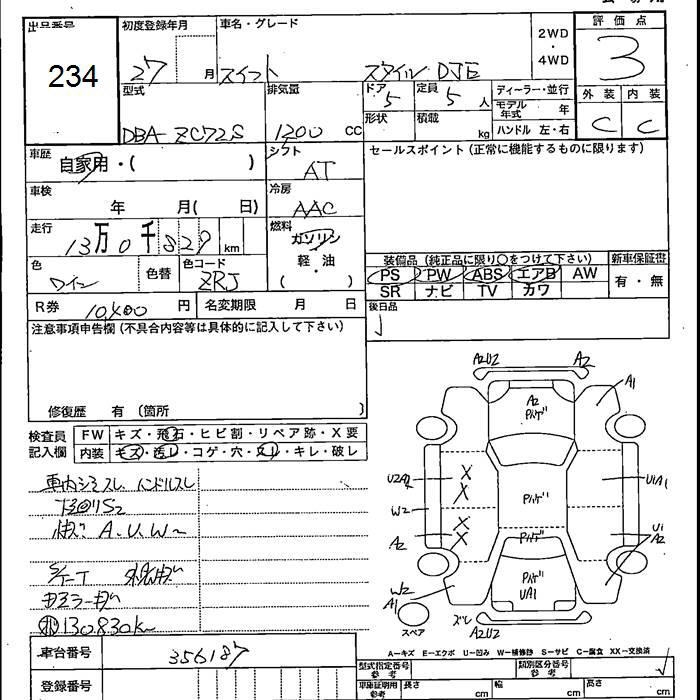 出品番号
234
初度登録年月
27 月
車名・グレード
スイフト スタイル DJE
2WD
・
4WD
評価点
3
外装 内装
C C
型式
DBA-ZC72S
排気量
1200 CC
ドア
5
定員
5 人
形状
積載
kg
ディーラー・並行
モデル年式 年
ハンドル 左・右
車歴
自家用・( )
シフト
AT
セールスポイント(正常に機能するものに限ります)
車検
年 月( 日)
冷房
AAC
走行
13万0千829 km
燃料
ガソリン
軽・油
( )
色
ワイン
色替
色コード
ZRJ
装備品(純正品に限り○をつけて下さい)
PS PW ABS エアB AW
SR ナビ TV カワ
新車保証書
有・無
R券
10,400 円
名変期限 月 日
後日品
注意事項申告欄(不具合内容等は具体的に記入して下さい)
修復歴 有(箇所 )
検査員
記入欄
FW キズ・飛石・ヒビ割・リペア跡・X要
内装 キズ・汚レ・コゲ・穴・スレ・キレ・破レ
車内シミスレ ハンドルスレ
A.U.W
130830k
A2U2
A2
A1
A2
U2A2
W2
A2
U1A1
U1
A2
X
X
X
X
UA1
W2
A1
スペア
A2U2
A-キズ E-エクボ U-凹み W-補修跡 S-サビ C-腐食 XX-交換済
車台番号
356187
登録番号
型式指定番号
参考
類別区分番号
参考
車庫証明用
参考
長さ cm
幅 cm
高さ cm